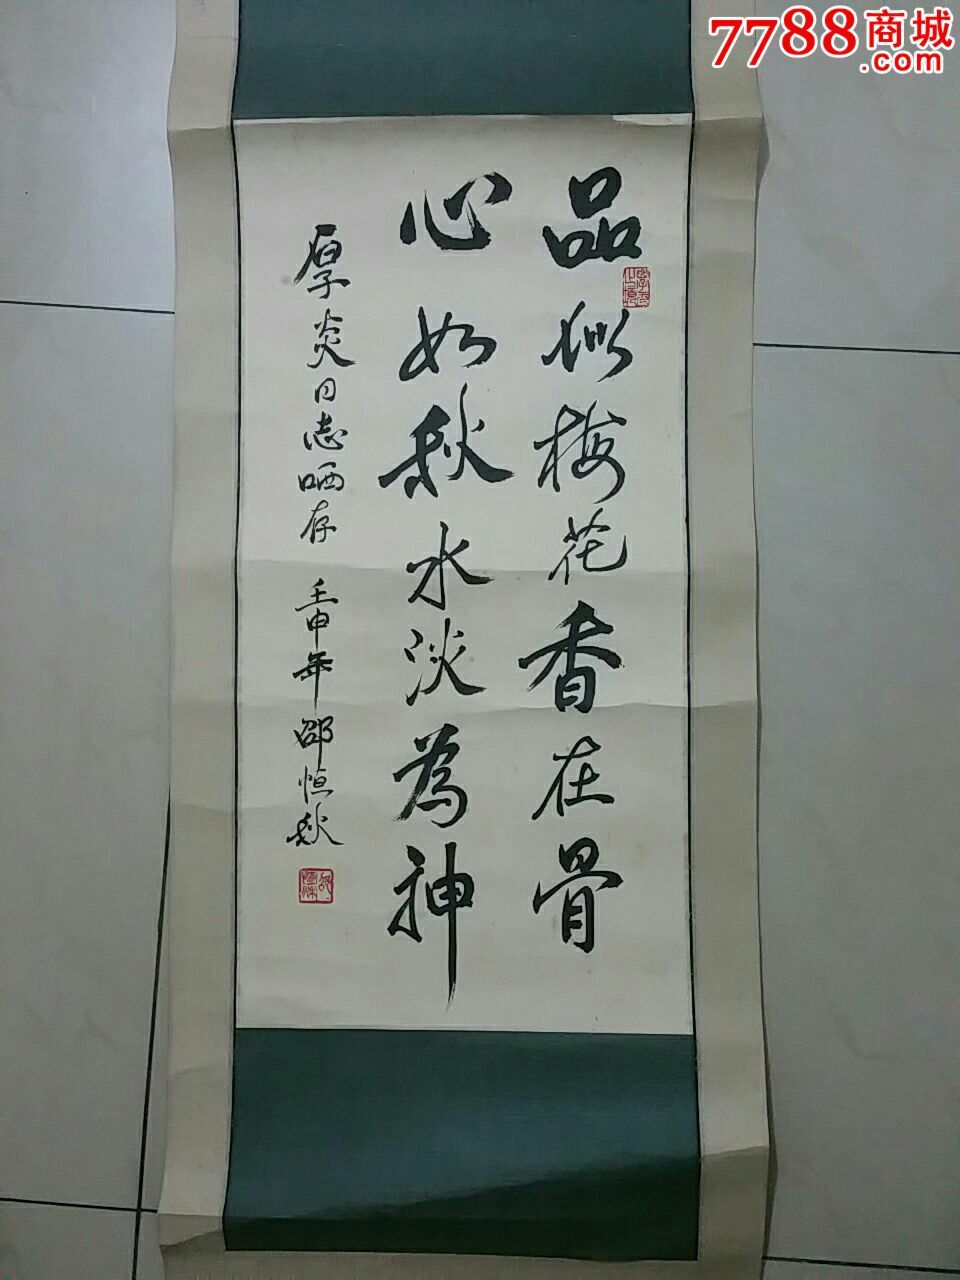 品似梅花香在骨
心如秋水淡為神
厚炎同志哂存 壬申年 邵恒秋
7788商城
.com